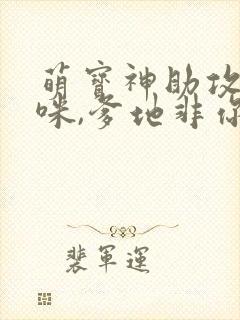 萌寶神助攻
咪,爹地非你
裴軍運